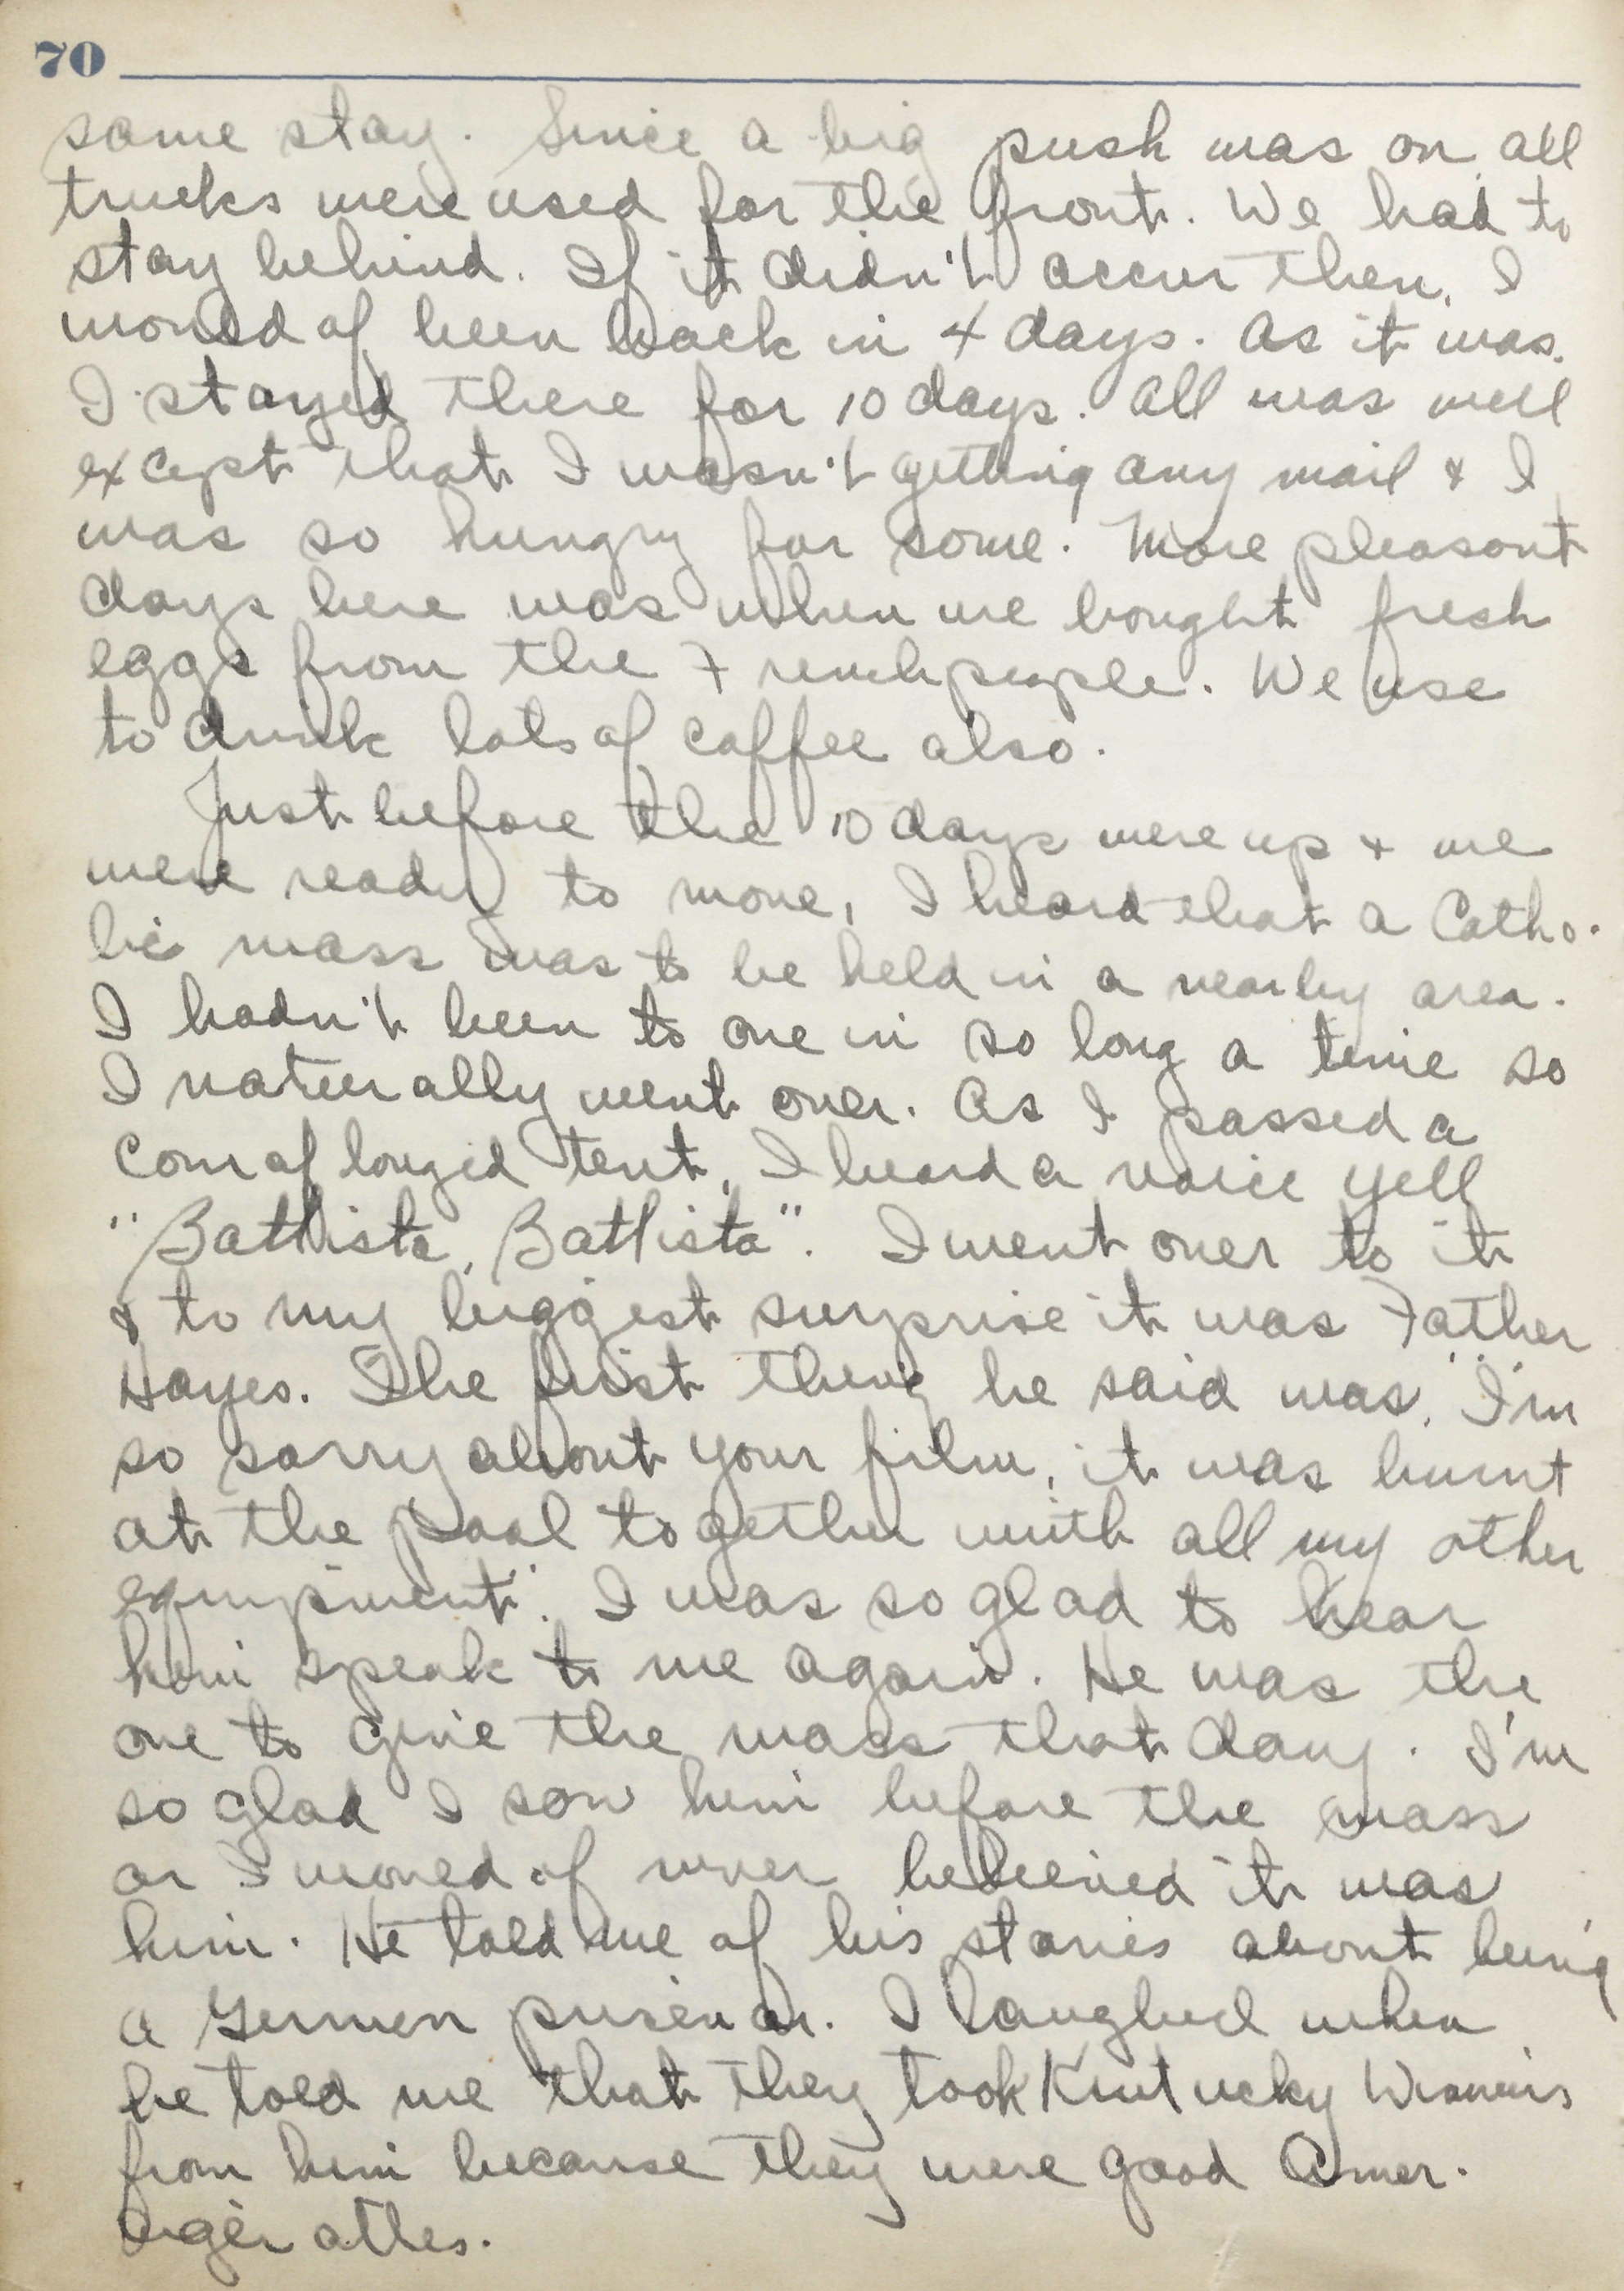 70
some stay. Since a big push was on all
trucks were used for the front. We had to
stay behind. If it didn't occur then, I
would of been back in 4 days. As it was.
I stayed there for 10 days. All was well
except that I wasn't getting any mail & I
was so hungry for some. More pleasant
days here was when we bought fresh
eggs from the French people. We use
to drink lots of coffee also.
Just before the 10 days were up & we
were ready to move, I heard that a Catho-
lic mass was to be held in a nearby area.
I hadn't been to one in so long a time so
I naturally went over. As I passed a
comoflouged tent, I heard a voice yell
"Battista, Battista". I went over to it
& to my biggest surprise it was Father
Hayes. The first thing he said was, "I'm
so sorry about your film, it was burnt
at the pool together with all my other
equipment". I was so glad to hear
him speak to me again. He was the
one to give the mass that day. I'm
so glad I saw him before the mass
or I would of never believed it was
him. He told me of his stories about being
a German prisenor. I laughed when
he told me that they took Kentucky Winners
from him because they were good Amer.
cigerattes.